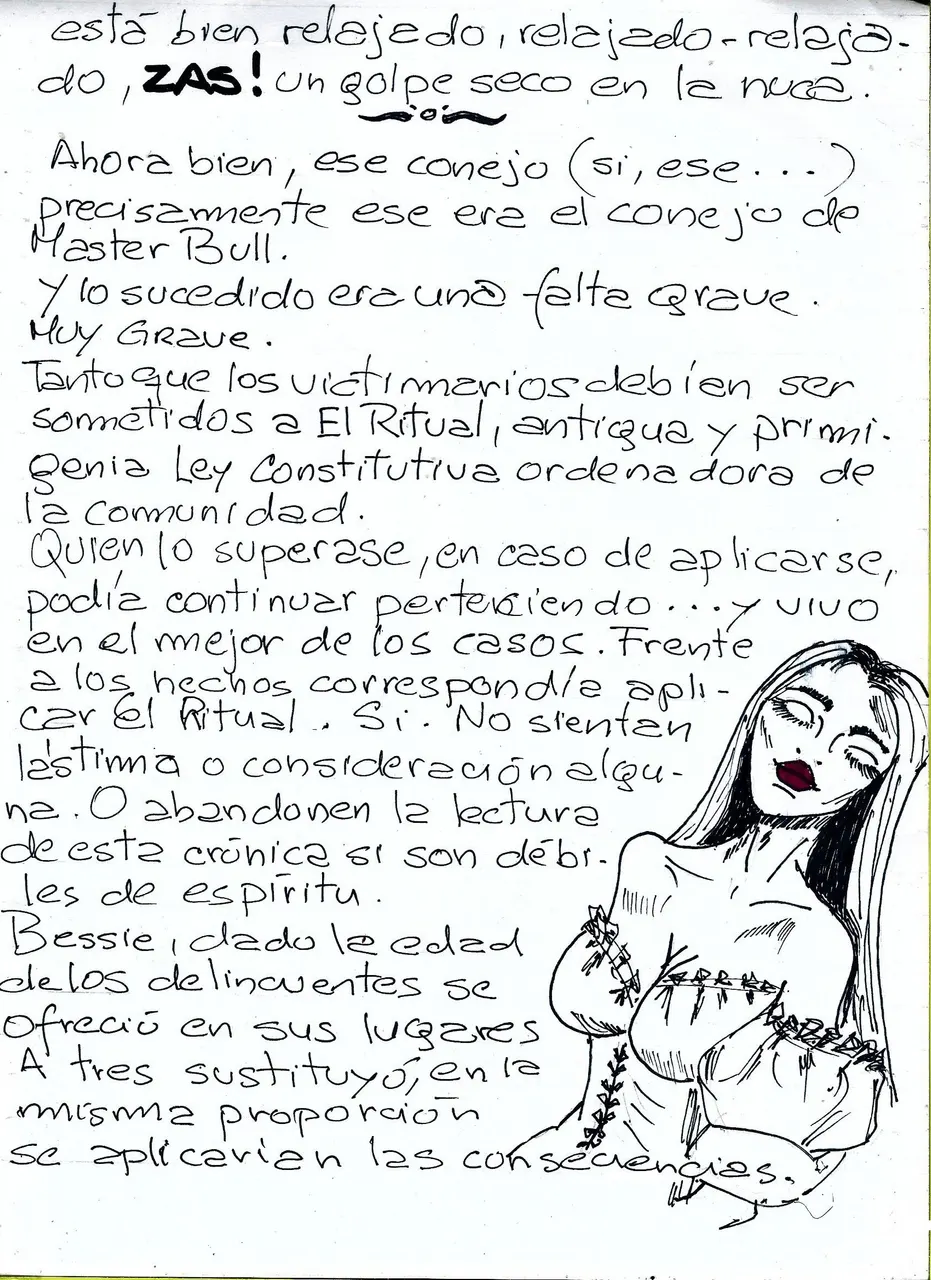 está bien relajado, relajado-relaja-
do, ZAS! un golpe seco en la nuca.
Ahora bien, ese conejo (si, ese...)
precisamente ese era el conejo de
Master Bull.
Y lo sucedido era una falta grave.
MUY GRAVE.
Tanto que los victimarios debían ser
sometidos a El Ritual, antigua y primi-
genia Ley Constitutiva ordenadora de
la comunidad.
Quien lo superase, en caso de aplicarse,
podía continuar perteneciendo... y vivo
en el mejor de los casos. Frente
a los hechos correspondía apli-
car el Ritual. Si. No sientan
lástima o consideración algu-
na. O abandonen la lectura
de esta crónica si son débi-
les de espíritu.
Bessie, dado la edad
de los delincuentes se
ofreció en sus lugares
A tres sustituyó, en la
misma proporción
se aplicarían las consecuencias.